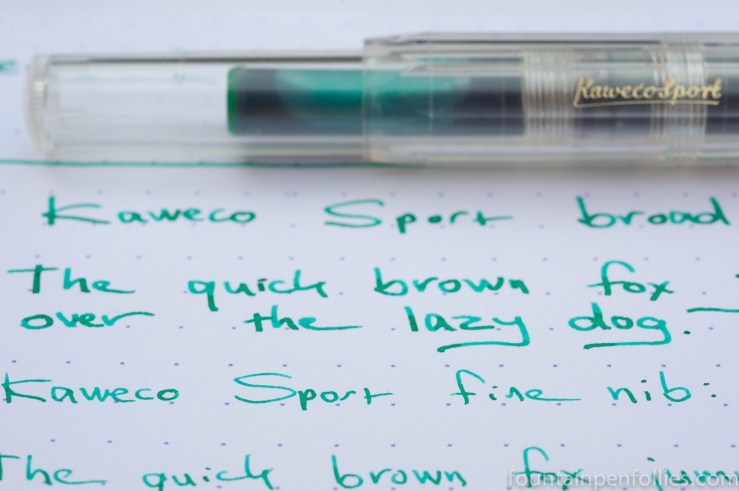 Kaweco Sport
Kaweco Sport broad
The quick brown fox
over the lazy dog.
Kaweco Sport fine nib:
The quick brown fox
fountainpenfollies.com